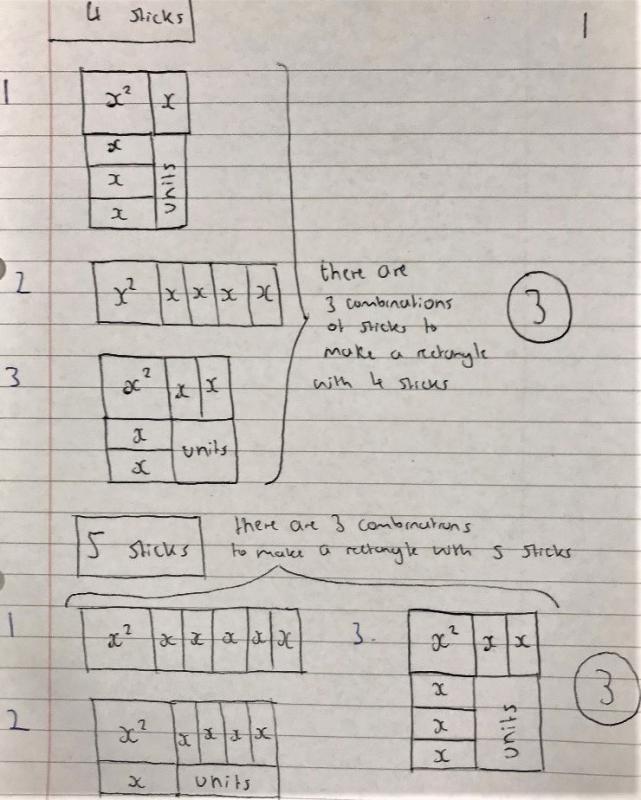 4 sticks
1
1
x² x
x
x
x
units
2
x² x x x x
3
x² x x
x
x
units
there are
3 combinations
of sticks to
make a rectangle
with 4 sticks
3
5 sticks
there are 3 combinations
to make a rectangle with 5 sticks
1
x² x x x x x
2
x² x x x x
x units
3.
x² x x
x
x
x
units
3